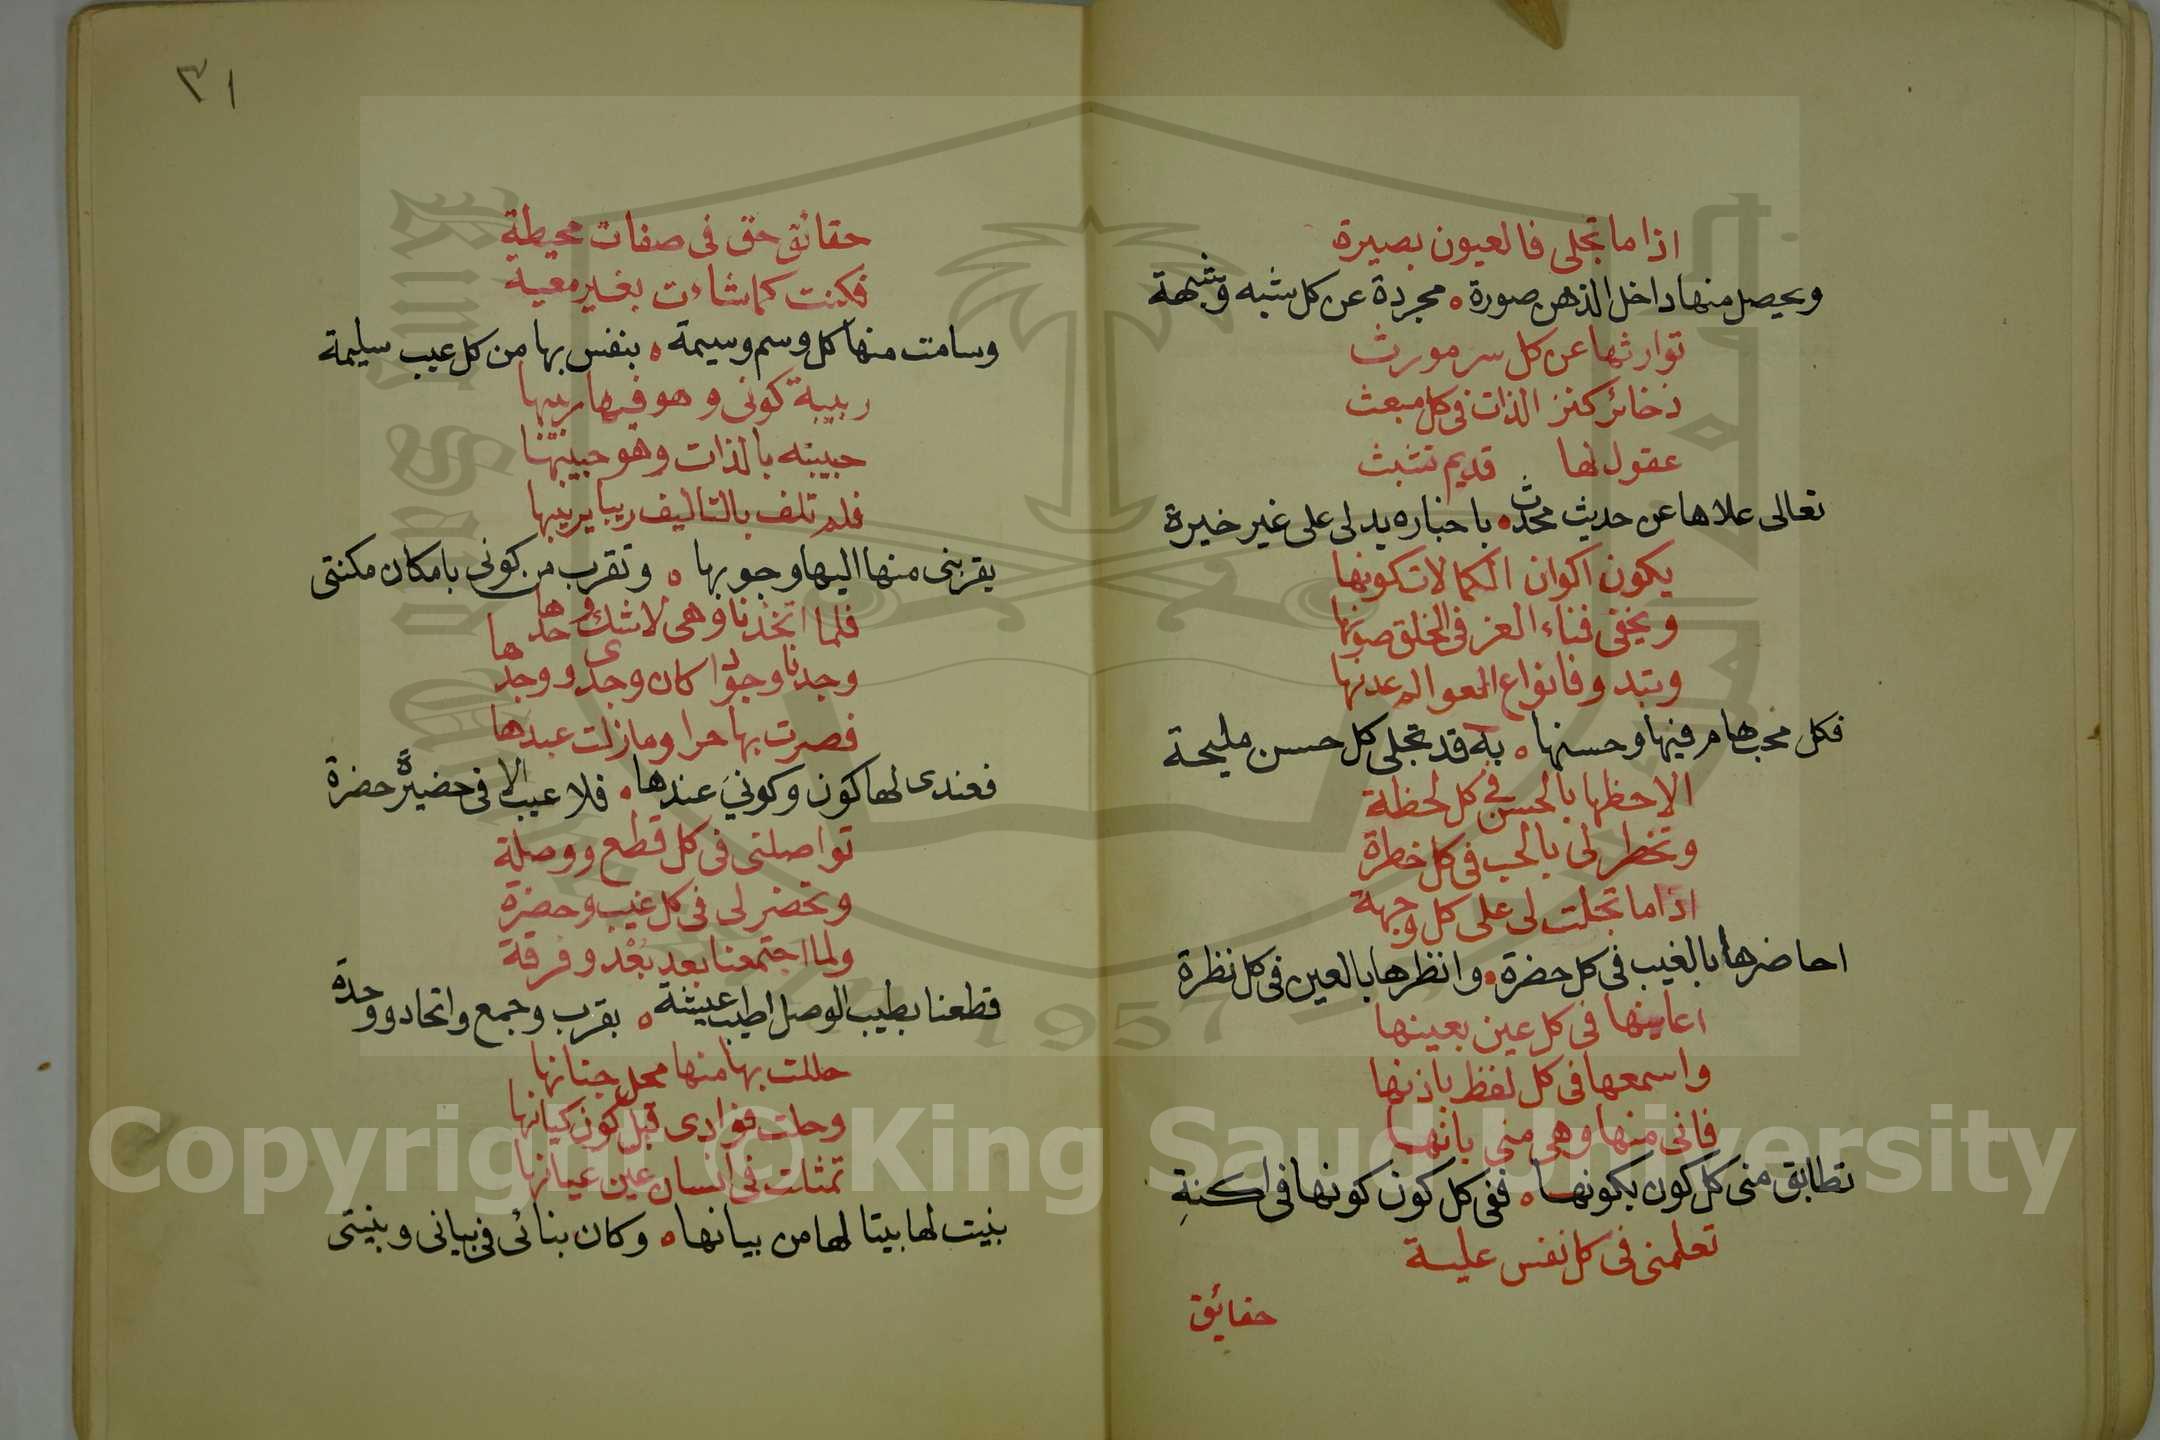 اذا ما تجلى فالعيون بصيرة
ويحصل منها داخل الذهن صورة ه مجردة عن كل شبه وشبهة
توارثها عن كل سر مورث
ذخائر كنز الذات في كل مبعث
عقول لها قديم تشبث
تعالى علاها عن حديث محدث ه باخباره يدلى على غير خيرة
يكون اكوان الكمالات كونها
ويخفى فناء العز في الخلق صونها
وتبدو فانواع العوالم عدنها
فكل محب هام فيها وحسنها ه به قد تجلى كل حسن مليحة
الاحظها بالحسن في كل لحظة
وتخطر لى بالحب في كل خطرة
اذا ما تجلت لى على كل وجهة
احاضرها بالغيب في كل حضرة ه وانظرها بالعين في كل نظرة
اعاينها في كل عين بعينها
واسمعها في كل لفظ باذنها
فانى منها وهى منى بانها
تطابق منى كل كون بكونها ه ففى كل كون كونها في اكنة
تعلمنى في كل نفس عليسة
حقايق
٣١
حقائق حق في صفات محيطة
فكنت كما شاءت بغير معية
وسامت منها كل وسم وسيمة ه بنفس بها من كل عيب سليمة
ربيبة كونى وهو فيها ربيبها
حبيبته بالذات وهو حبيبها
فلم تلف بالتاليف ريبا يريبها
يقربنى منها اليها وجوبها ه وتقرب من كونى بامكان مكنتى
فلما اتخذنا وهى لا شك وحدها
وجدنا وجودا كان وجدى ووجدها
فصرت بها حرا ومازلت عبدها
فعندى لها كون وكونى عندها ه فلا عيب الا في حضيرة حضرة
تواصلنى في كل قطع ووصلة
وتحضر لى في كل غيب وحضرة
ولما اجتمعنا بعد بعد وفرقة
قطعنا بطيب الوصل اطيب عيشة ه بقرب وجمع واتحاد ووحدة
حللت بها منها محل جنانها
وحلت فؤادى قبل كون كيانها
تمثلت في انسان عين عيانها
بنيت لها بيتا لها من بيانها ه وكان بنائى في بيانى وبنيتى
Copyright © King Saud University
King Saud University
1957